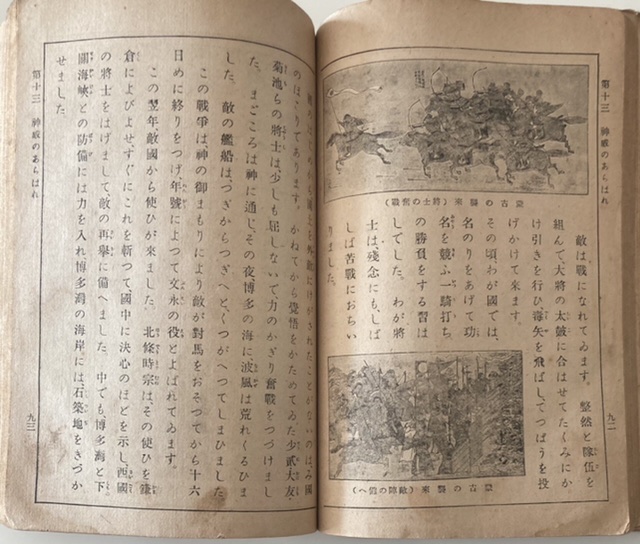 第十三　神威のあらはれ
九二
蒙古の襲來（將士の奮戰）
敵は戰になれてゐます。整然と隊伍を
組んで、大將の太鼓に合はせてたくみにか
け引きを行ひ毒矢を飛ばし、てつぱうを投
げかけて來ます。
その頃わが國では、
名のりをあげて功
名を競ふ一騎打ち
の勝負をする習は
しでした。わが將
士は、殘念にも、しば
しば苦戰におちい
りました。
蒙古の襲來（敵陣の へ）
國土を外敵にけがされたことがないのは、み國
のほこりであります。かねてから覺悟をかためてゐた少貳・大友・
菊池らの將士は、少しも屈しないで力のかぎり奮戰をつづけまし
た。まごころは神に通じ、その夜博多の海に、波風は荒れくるひま
した。敵の艦船は、つぎからつぎへと、くつがへつてしまひました。
この戰爭は、神の御まもりにより敵が對馬をおそつてから十六
日めに終りをつげ年號によつて文永の役とよばれてゐます。
この翌年敵國から使ひが來ました。北條時宗はその使ひを鎌
倉によびよせすぐにこれを斬つて國中に決心のほどを示し、西國
の將士をはげまして、敵の再擧に備へました。中でも博多灣と下
關海峽との防備には力を入れ博多灣の海岸には石築地をきづか
せました。
第十三　神威のあらはれ
九三